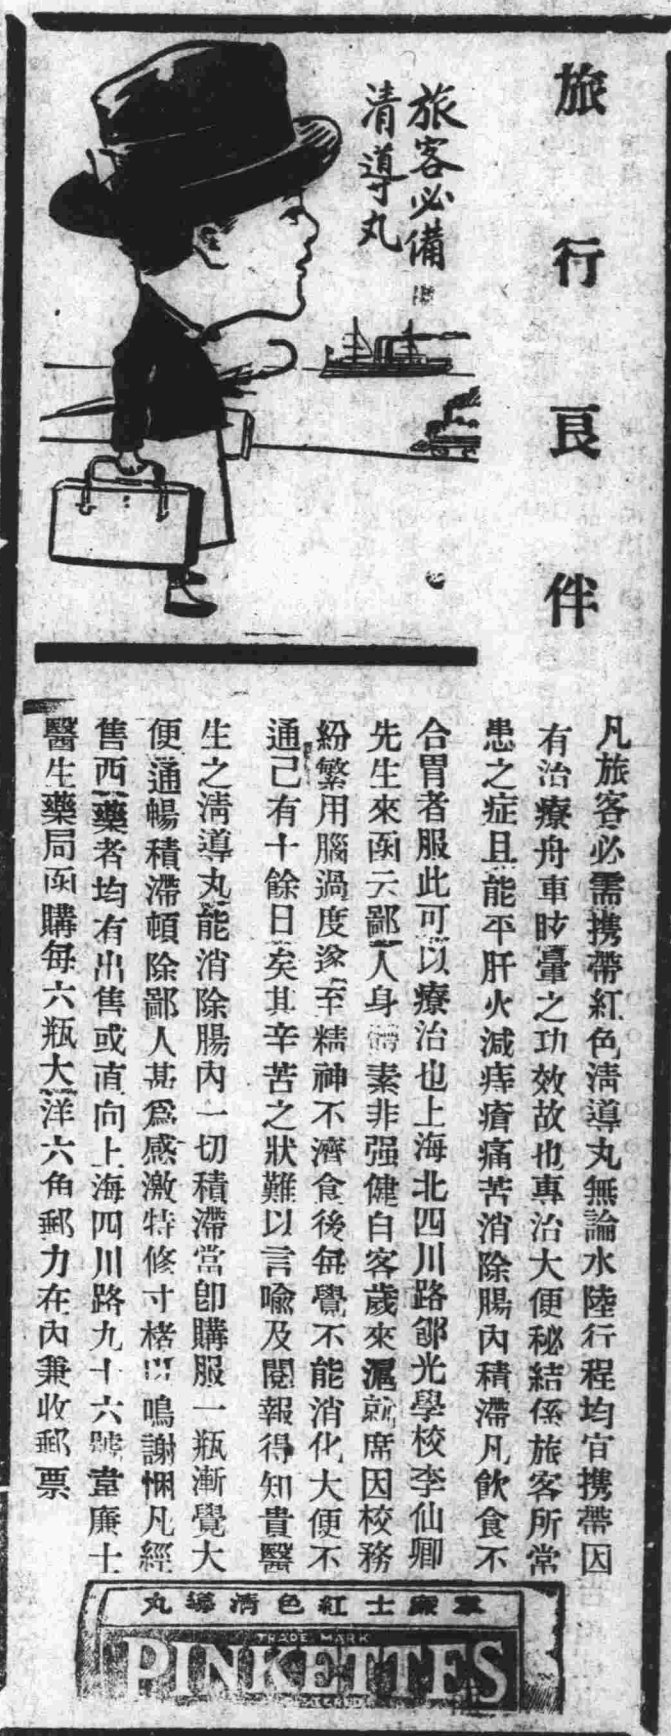 旅行良伴
旅客必備
清導丸
凡旅客必需携帶紅色清導丸無論水陸行程均宜携帶因
有治療舟車眩暈之功效故也專治大便秘結係旅客所常
患之症且能平肝火減痔瘡痛苦消除腸內積滯凡飲食不
合胃者服此可以療治也上海北四川路光學校李仙卿
先生來函云鄙人身體素非强健自客歲來滬就席因校務
紛繁用腦過度遂至精神不濟食後每覺不能消化大便不
通已有十餘日矣其辛苦之狀難以言喩及閱報得知貴醫
生之淸導丸能消除腸內一切積滯當卽購服一瓶漸覺大
便通暢積滯頓除鄙人甚爲感激特修寸楮以鳴謝悃凡經
售西藥者均有出售或直向上海四川路九十六號韋廉士
醫生藥局函購每六瓶大洋六角郵力在內兼收郵票
韋廉士紅色清導丸
TRADE MARK
PINKETTES